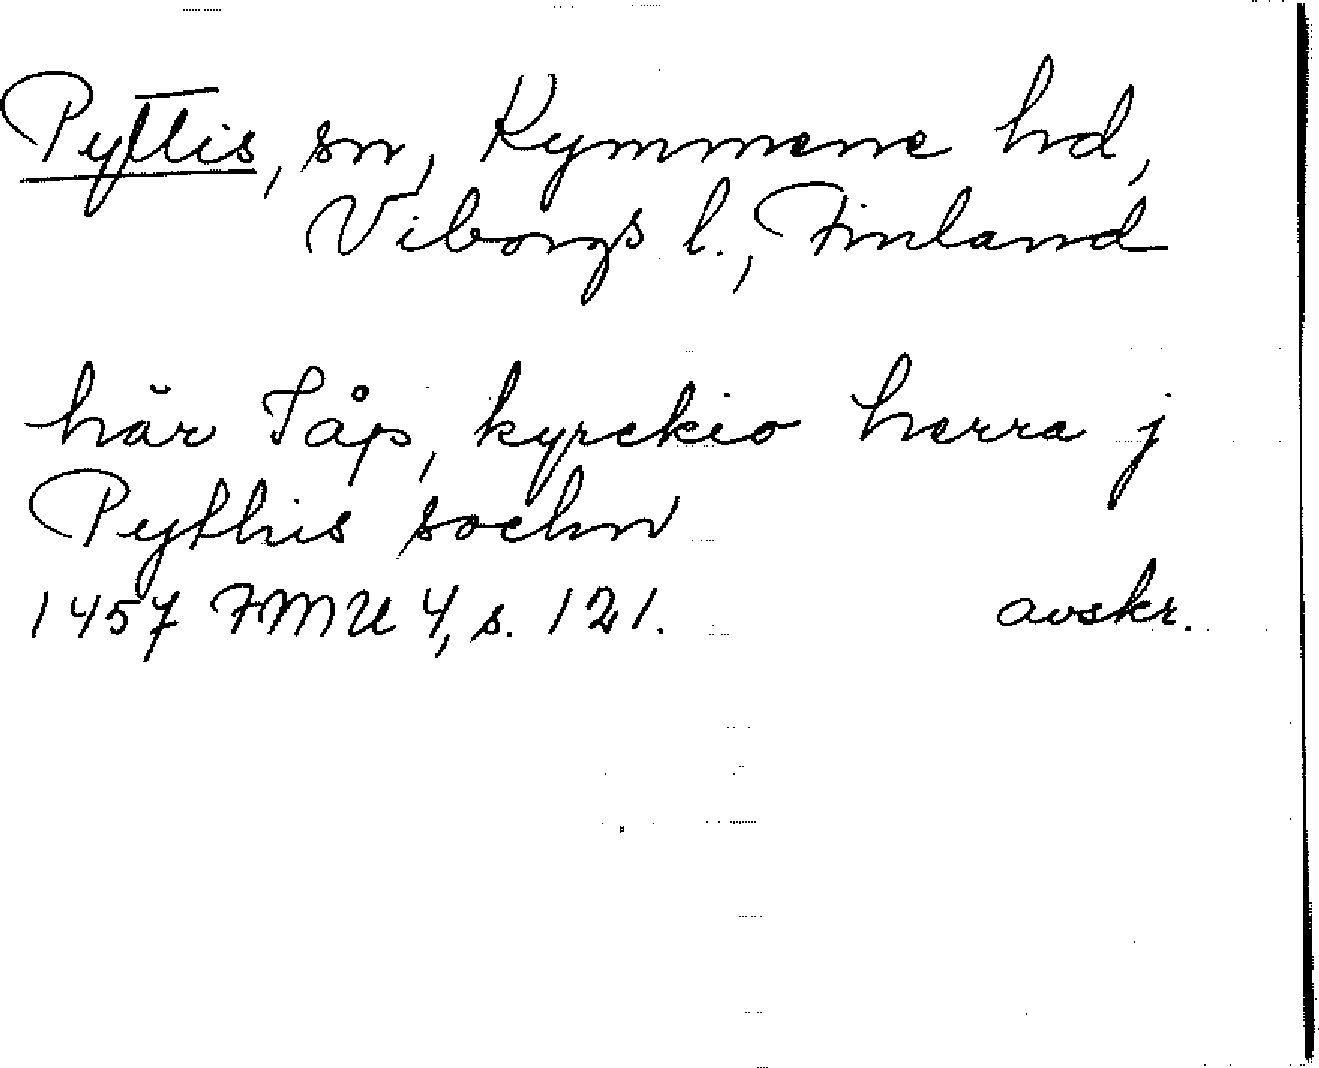 Pyttis, sn, Kymmene hd,
Viborgs l., Finland
här Jåp, kyrckio herra j
Pythis sochn
1457 FMU 4, s. 121. avskr.